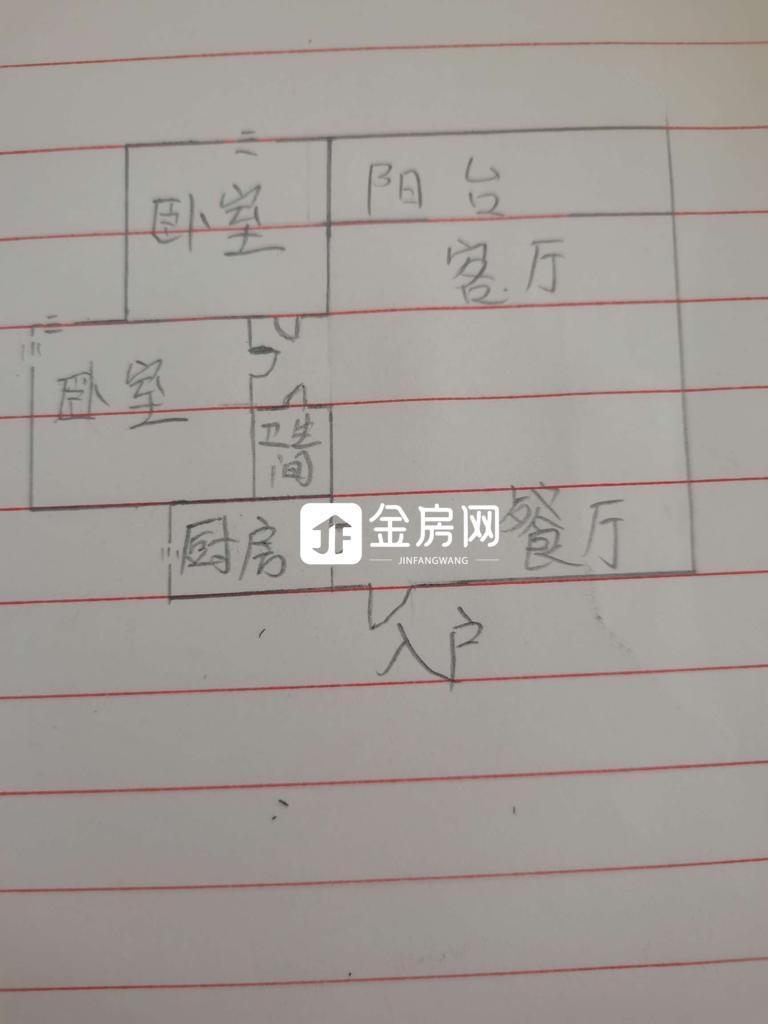 阳台
卧室
客厅
卧室
卫生
间
餐厅
厨房
JF
金房网
JINFANGWANG
入户